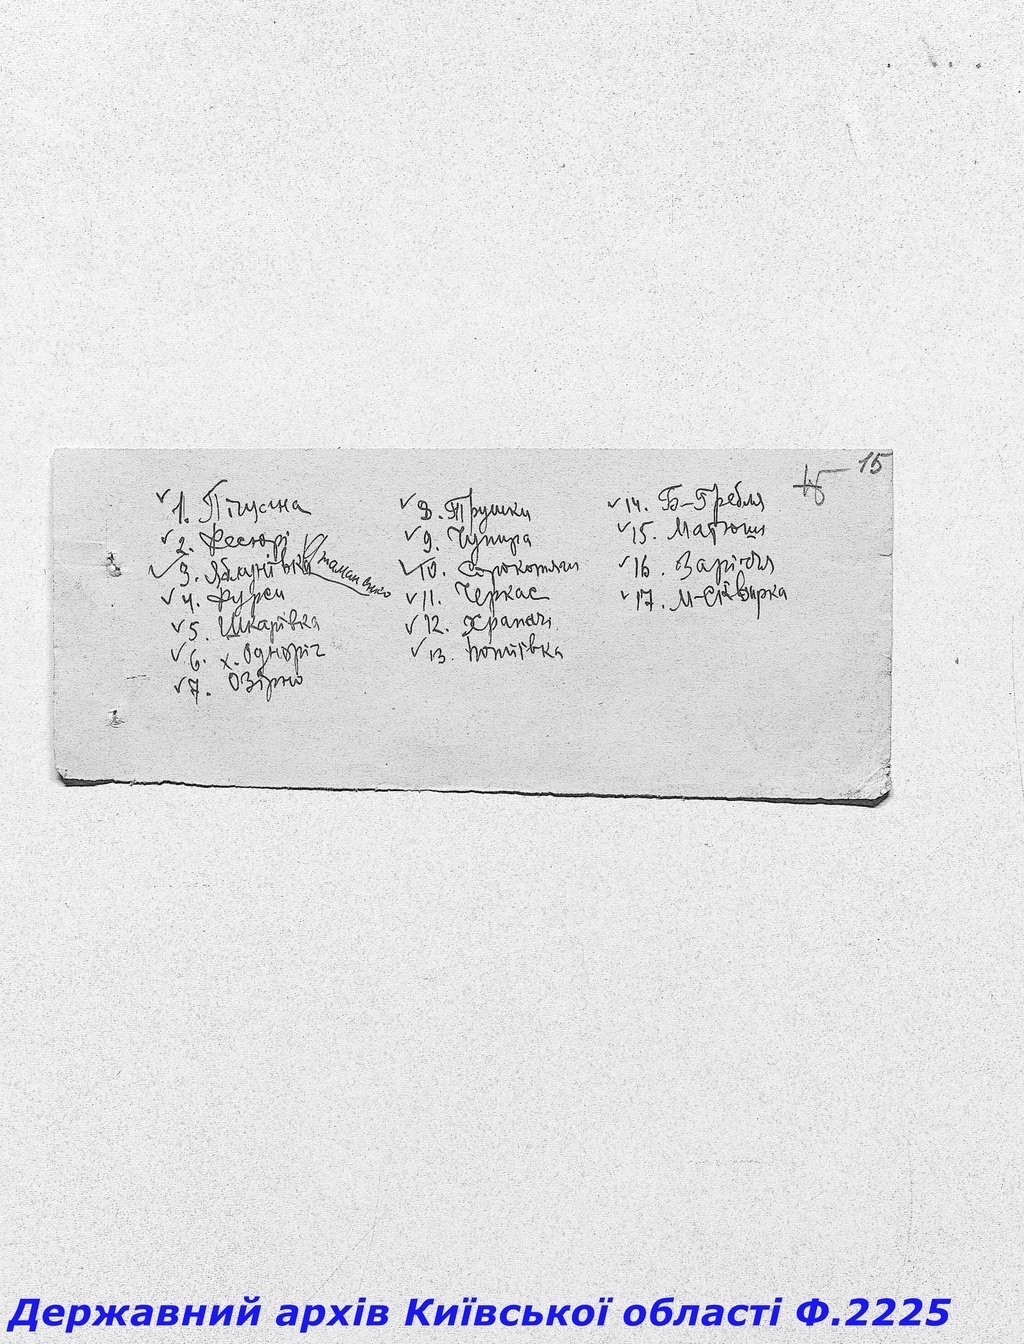 15
✓1. Піщана
✓2. Фесюрі
✓3. Яблунівка
✓4. Фурси
✓5. Шкарівка
✓6. х. Одноріг
✓7. Озірно
✓8. Трушки
✓9. Чупира
✓10. Сорокотяги
✓11. Черкас
✓12. Храпачі
✓13. Потіївка
✓14. Б-Гребля
✓15. Матюші
✓16. Заріччя
✓17. М-Сквирка
Державний архів Київської області Ф.2225